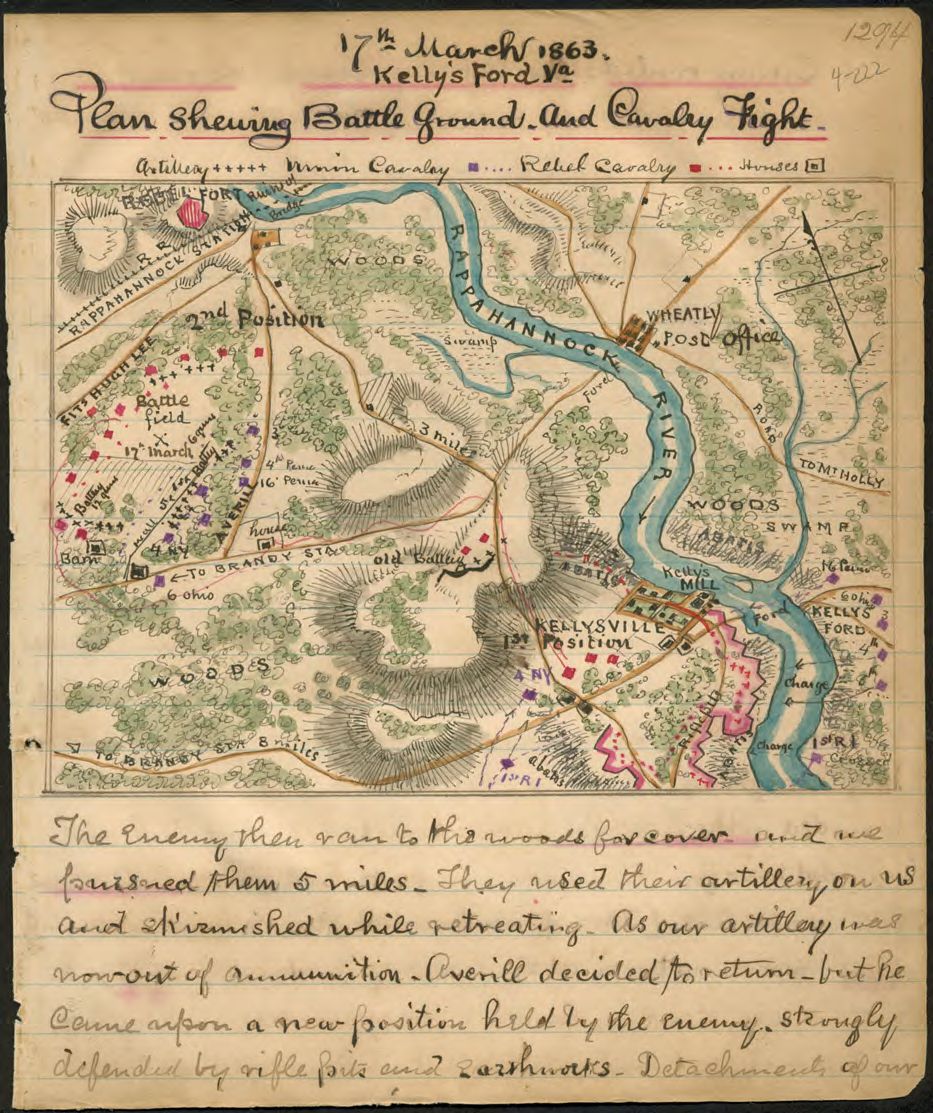 1294
4-222
17th March 1863.
Kelly's Ford Va
Plan Shewing Battle Ground - And Cavalry Fight.
Artillery +++++ Union Cavalry ■ .... Rebel Cavalry ■ ... Houses
REBEL FORT
Ruins of Bridge
R. R.
RAPPAHANNOCK STATION
WOODS
2nd Position
FITSHUGH LEE
Battle field
X
17th March
6 guns Battery
Battery
Barn
wall
4 NY
6 Ohio
AVERILL
4th Penna
16 Penna
house
← TO BRANDY STA
Swamp
3 miles
old Battery
RAPPAHANNOCK RIVER
Ford
WHEATLY
Post Office
ROAD
TO Mt HOLLY
WOODS
SWAMP
ABATIS
ABATIS
Kelly's MILL
Ford
KELLYSVILLE
1st Position
4 NY
1st RI
abatis
ABATIS
16 Penn
6 Ohio
KELLYS FORD
4th
charge
charge
1st RI
Crossed
WOODS
TO BRANDY STA 8 miles
The Enemy then ran to the woods for cover and we
pursned them 5 miles - They used their artillery on us
and skirmished while retreating. As our artillery was
now out of ammunition - Averill decided to return - but he
came upon a new position held by the enemy. strongly
defended by rifle pits and Earthworks - Detachments of our